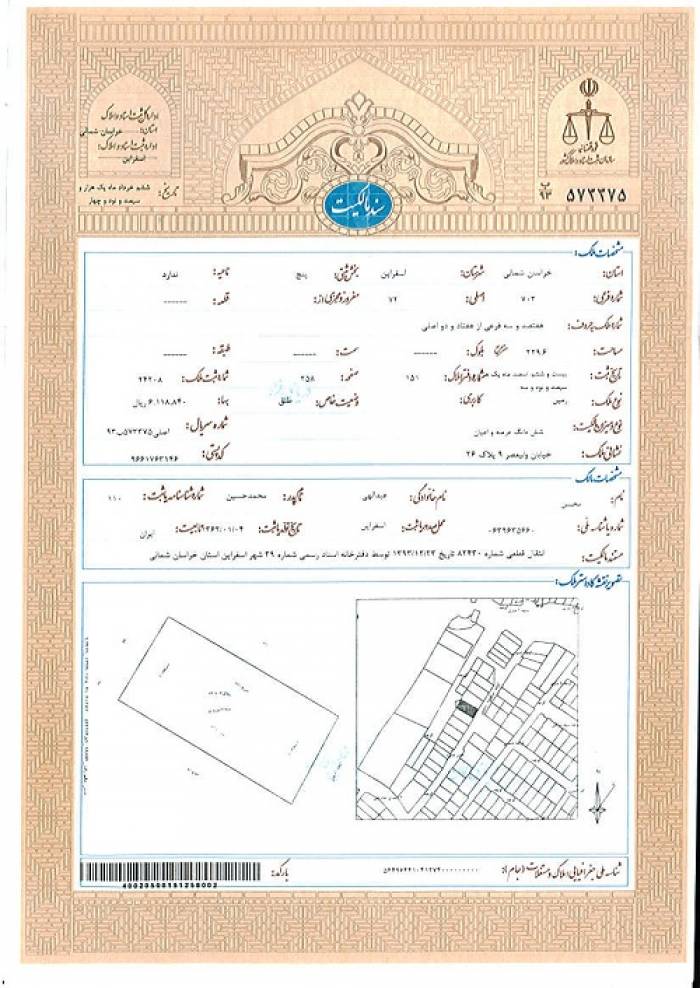 قوه قضائیه
سازمان ثبت اسناد و املاک کشور
ب ۹۳ ۵۷۳۳۷۵
اداره کل ثبت اسناد و املاک
استان: خراسان شمالی
اداره ثبت اسناد و املاک:
اسفراین
تاریخ: ششم خرداد ماه یک هزار و
سیصد و نود و چهار
سند مالکیت
مشخصات ملک:
استان: خراسان شمالی شهرستان: اسفراین بخش ثبتی: پنج ناحیه: ندارد
شماره فرعی: ۷۰۳ اصلی: ۷۲ مفروز و مجزی از: ------ قطعه: ------
شماره ملک به حروف: هفتصد و سه فرعی از هفتاد و دو اصلی
مساحت: ۲۲۹.۶ مترمربع بلوک: ------ سمت: ------ طبقه: ------
تاریخ ثبت: بیست و ششم اسفند ماه یک هزار و سیصد و نود و سه شماره دفتر املاک: ۱۵۱ صفحه: ۲۵۸ شماره ثبت ملک: ۲۴۲۰۸
نوع ملک: زمین کاربری: وضعیت خاص: طلق بهاء: ۶.۱۱۸.۸۴۰ ریال
نوع و میزان مالکیت: شش دانگ عرصه و اعیان شماره سریال: اصلی ۵۷۳۳۷۵ب۹۳
نشانی ملک: خیابان ولیعصر ۹ پلاک ۲۶ کد پستی: ۹۶۶۱۷۶۳۱۴۶
مشخصات مالک
نام: محسن نام خانوادگی: عبدالهی نام پدر: محمدحسین شماره شناسنامه یا ثبت: ۱۱۰
شماره یا شناسه ملی: ۰۶۳۹۶۳۵۶۶۰ محل صدور یا ثبت: اسفراین تاریخ تولد یا ثبت: ۱۳۶۲/۰۱/۰۴ تابعیت: ایران
مستند مالکیت: انتقال قطعی شماره ۸۲۴۳۰ تاریخ ۱۳۹۳/۱۲/۲۳ توسط دفترخانه اسناد رسمی شماره ۲۹ شهر اسفراین استان خراسان شمالی
تصویر نقشه کاداستر ملک:
شناسه ملی جغرافیایی املاک و مستغلات (جام):
بارکد: